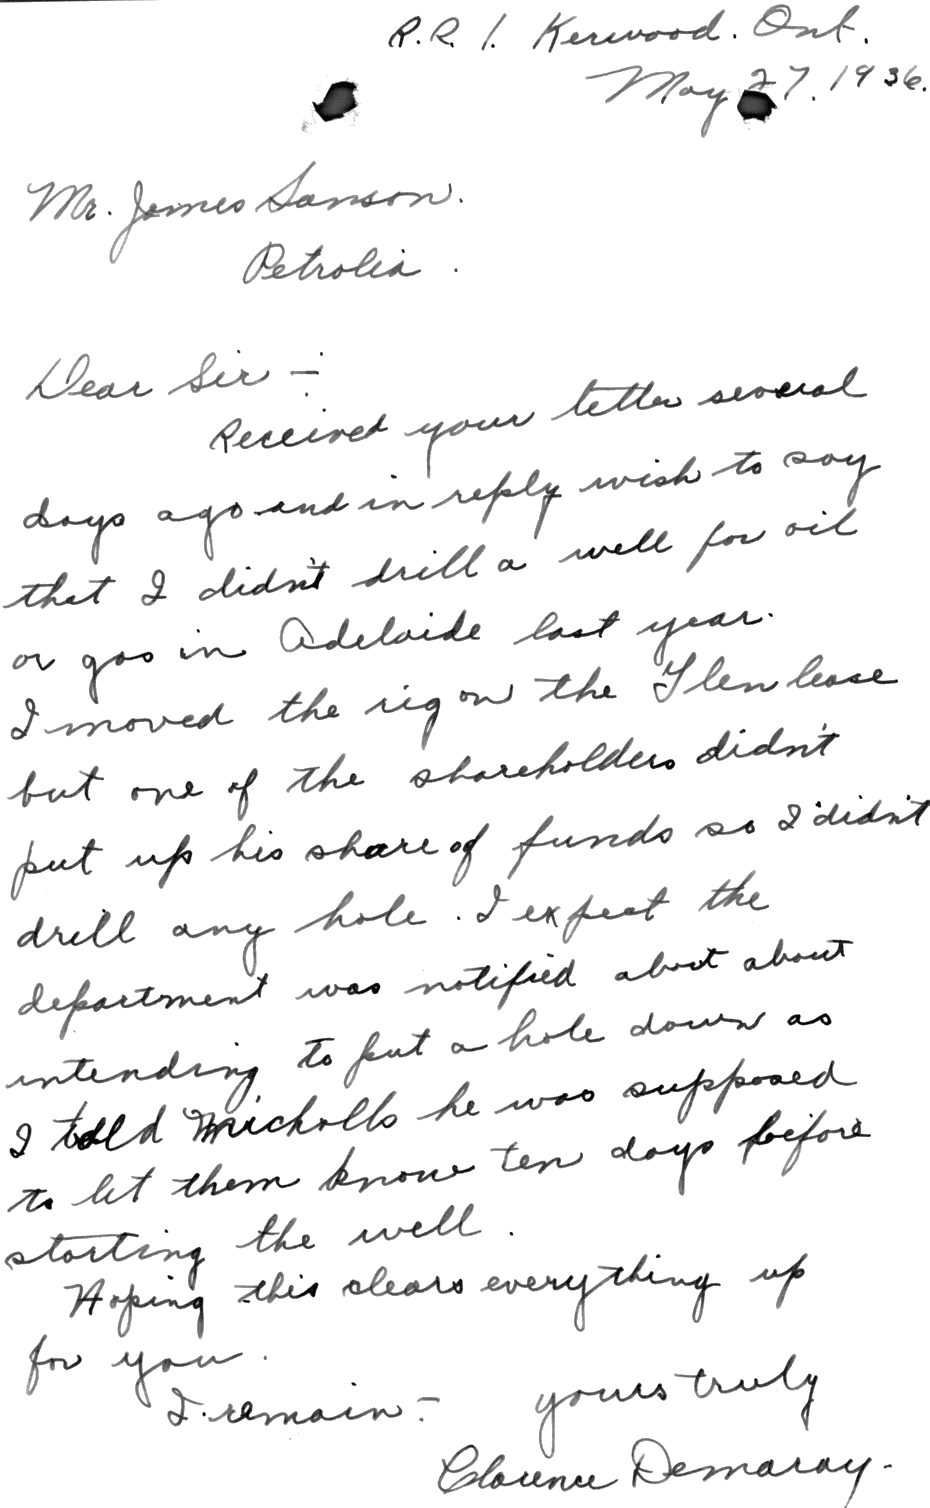 R.R. 1. Kerwood. Ont.
May 27. 1936.
Mr. James Sanson.
Petrolia.
Dear Sir -
Received your letter several
days ago and in reply wish to say
that I didn't drill a well for oil
or gas in Adelaide last year.
I moved the rig on the Glen lease
but one of the shareholders didn't
put up his share of funds so I didn't
drill any hole. I expect the
department was notified about about
intending to put a hole down as
I told Micholls he was supposed
to let them know ten days before
starting the well.
Hoping this clears everything up
for you.
I remain - yours truly
Clarence Demaray.